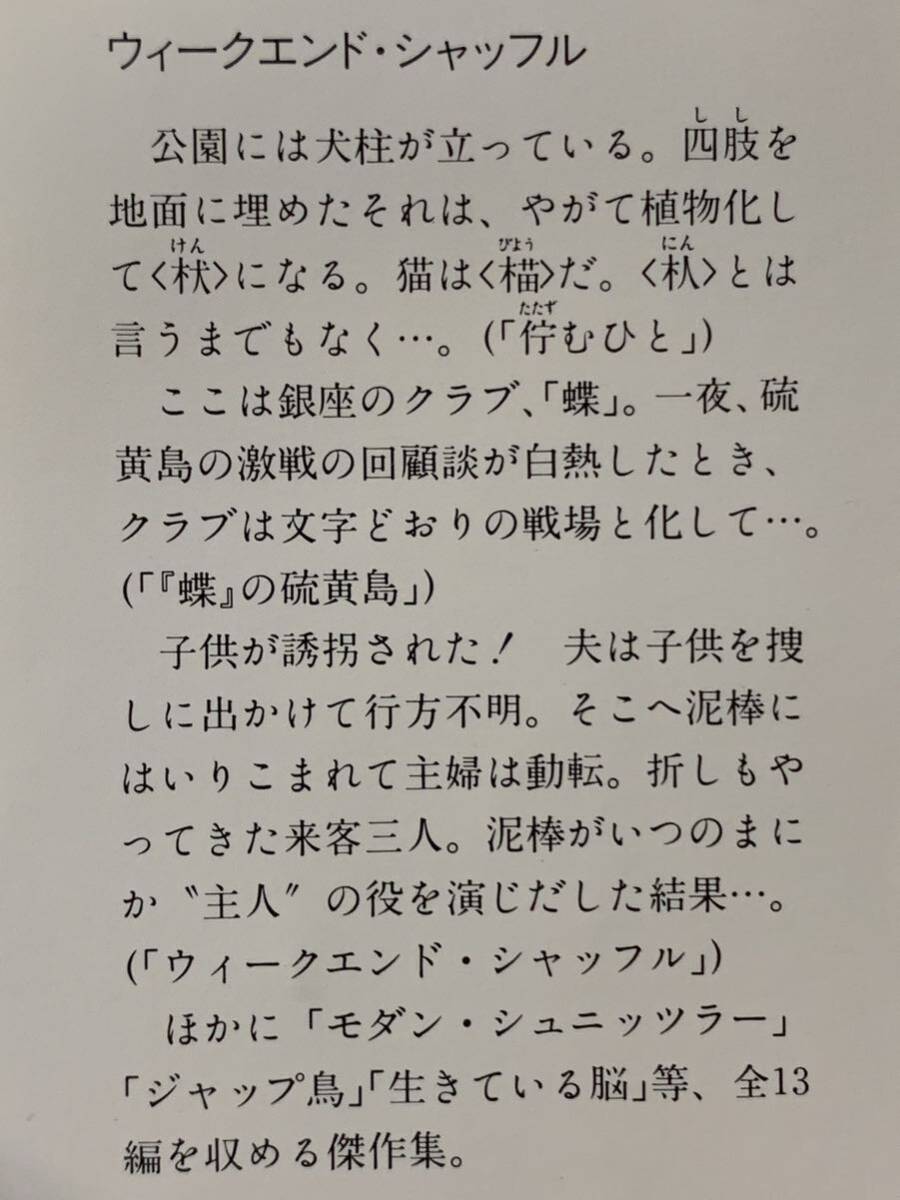 ウィークエンド・シャッフル
公園には犬柱が立っている。四肢を
地面に埋めたそれは、やがて植物化し
て〈枤〉になる。猫は〈楿〉だ。〈朲〉とは
言うまでもなく…。(「佇むひと」)
ここは銀座のクラブ、「蝶」。一夜、硫
黄島の激戦の回顧談が白熱したとき、
クラブは文字どおりの戦場と化して…。
(「『蝶』の硫黄島」)
子供が誘拐された! 夫は子供を捜
しに出かけて行方不明。そこへ泥棒に
はいりこまれて主婦は動転。折しもや
ってきた来客三人。泥棒がいつのまに
か〝主人〟の役を演じだした結果…。
(「ウィークエンド・シャッフル」)
ほかに「モダン・シュニッツラー」
「ジャップ鳥」「生きている脳」等、全13
編を収める傑作集。